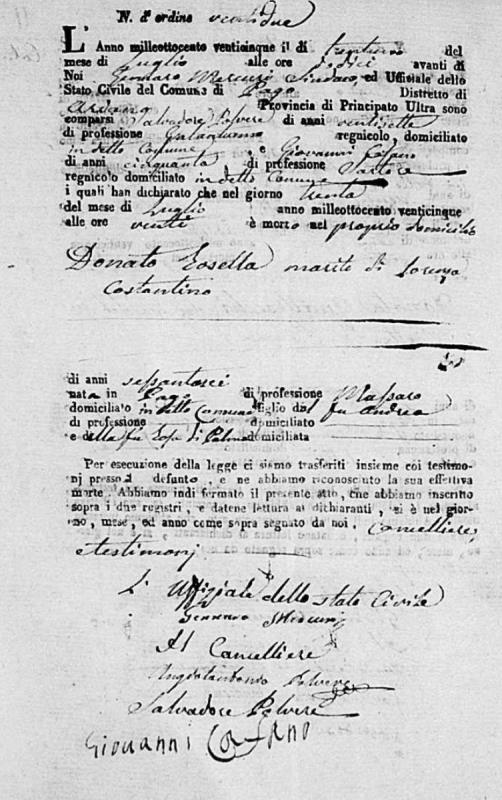 N. d'ordine ventidue
L'Anno milleottocento venticinque il dì trentuno del
mese di Luglio alle ore dodici avanti di
Noi Gennaro Mercuri Sindaco, ed Uffiziale dello
Stato Civile del Comune di Pago Distretto di
Ariano Provincia di Principato Ultra sono
comparsi Salvadore Polvere di anni ventisette
di professione Galantuomo regnicolo domiciliato
in detto Comune, e Giovanni Cafano
di anni cinquanta di professione Sartore
regnicolo domiciliato in detto Comune
i quali han dichiarato che nel giorno trenta
del mese di Luglio anno milleottocento venticinque
alle ore venti è morto nel proprio domicilio
Donato Iosella marito di Lorenza
Costantino
di anni sessantasei
nata in Pago di professione Massaro
domiciliato in detto Comune figlio del fu Andrea
di professione domiciliato
e della fu domiciliata
Per esecuzione della legge ci siamo trasferiti insieme coi testimo-
nj presso il defunto, e ne abbiamo riconosciuto la sua effettiva
morte. Abbiamo indi formato il presente atto, che abbiamo inscritto
sopra i due registri, e datene lettura ai dichiaranti, si è nel gior-
no, mese, ed anno come sopra segnato da noi. Cancelliere,
e testimonj
L'Uffiziale dello stato Civile
Gennaro Mercurj
Il Cancelliere
Angelantonio Polvere
Salvadore Polvere
Giovanni Cafano